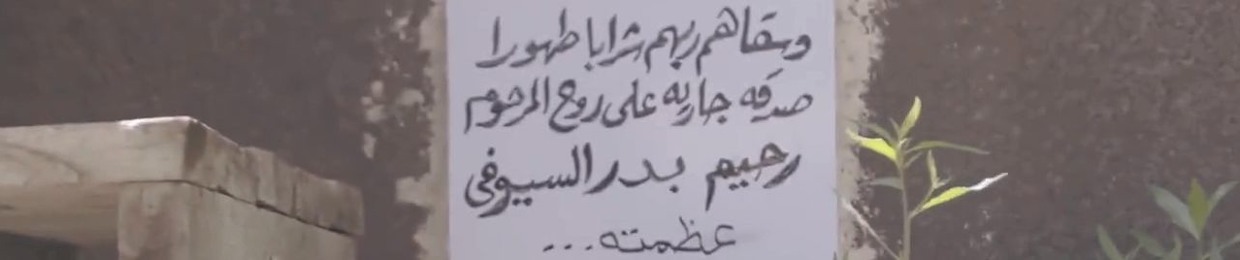 وسقاهم ربهم شرابا طهورا
صدقه جاريه على روح المرحوم
رحيم بدر السيوفي
عظمته...